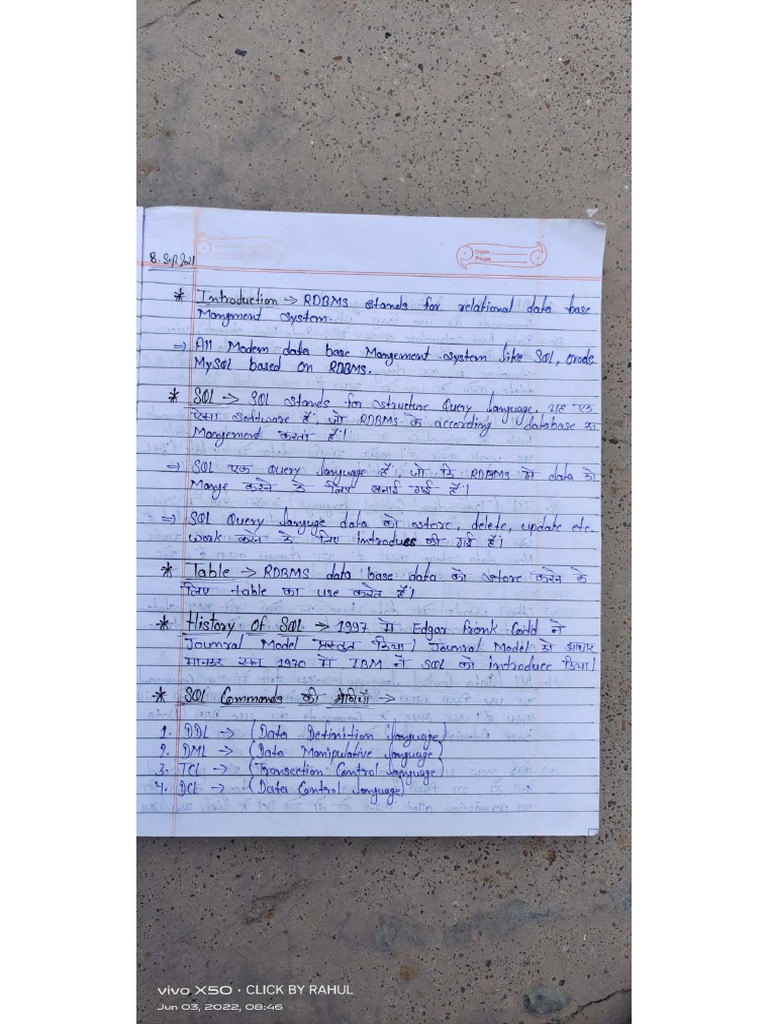 8. Sep 2021
Date
Page
* Introduction → RDBMS stands for relational data base
Mangment system.
⇒ All Modern data base Mangement system like SQL, oracle
MySQL based on RDBMS.
* SQL → SQL stands for structure Query language. यह एक
ऐसा software है, जो RDBMS के according database का
Mangement करता है।
⇒ SQL एक Query language है, जो कि RDBMS में data को
Mange करने के लिए बनाई गई है।
⇒ SQL Query languge data को store, delete, update etc.
work करने के लिए introdues की गई है।
* Table → RDBMS data base data को store करने के
लिए table का use करते हैं।
* History of SQL → 1997 में Edgar Frank Codd ने
Journral Model प्रस्तुत किया। Journral Model को आधार
मानकर सन 1970 में IBM ने SQL को introduce किया।
* SQL Commands की श्रेणियाँ →
1. DDL → (Data Definition language)
2. DML → (Data Manipulative language)
3. TCL → (Transection Control language)
4. DCL → (Data Control language)
vivo X50 · CLICK BY RAHUL
Jun 03, 2022, 08:46